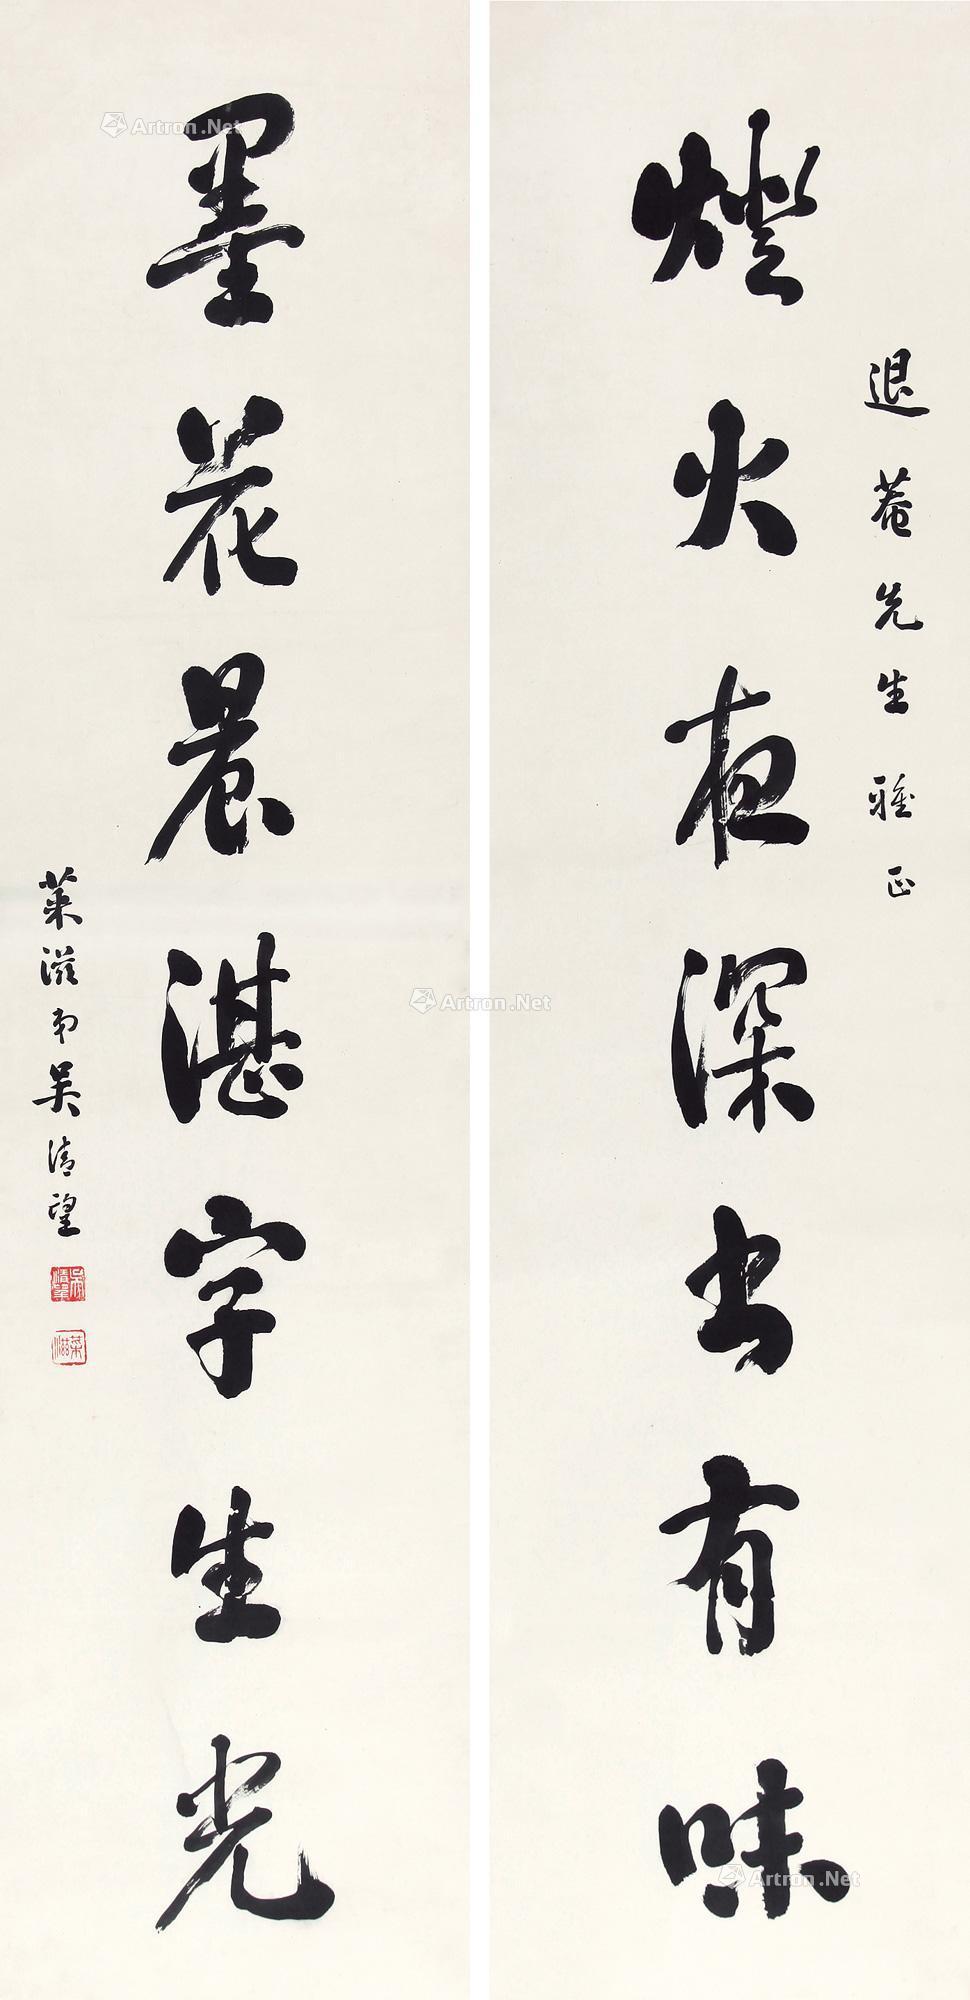 退菴先生雅正
燈火夜深書有味
墨花晨湛字生光
萊滋弟吳清望
Artron.Net
Artron.Net
Artron.Net